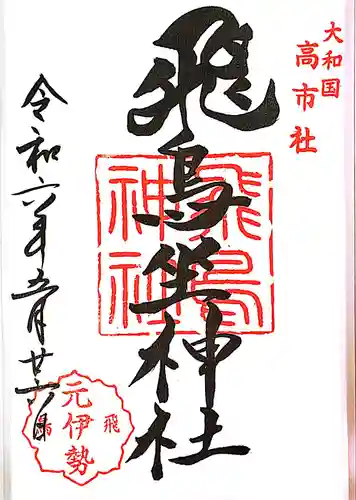 大和国
高市社
飛鳥坐神社
飛鳥
神社
令和六年五月廿六日
飛
元伊勢